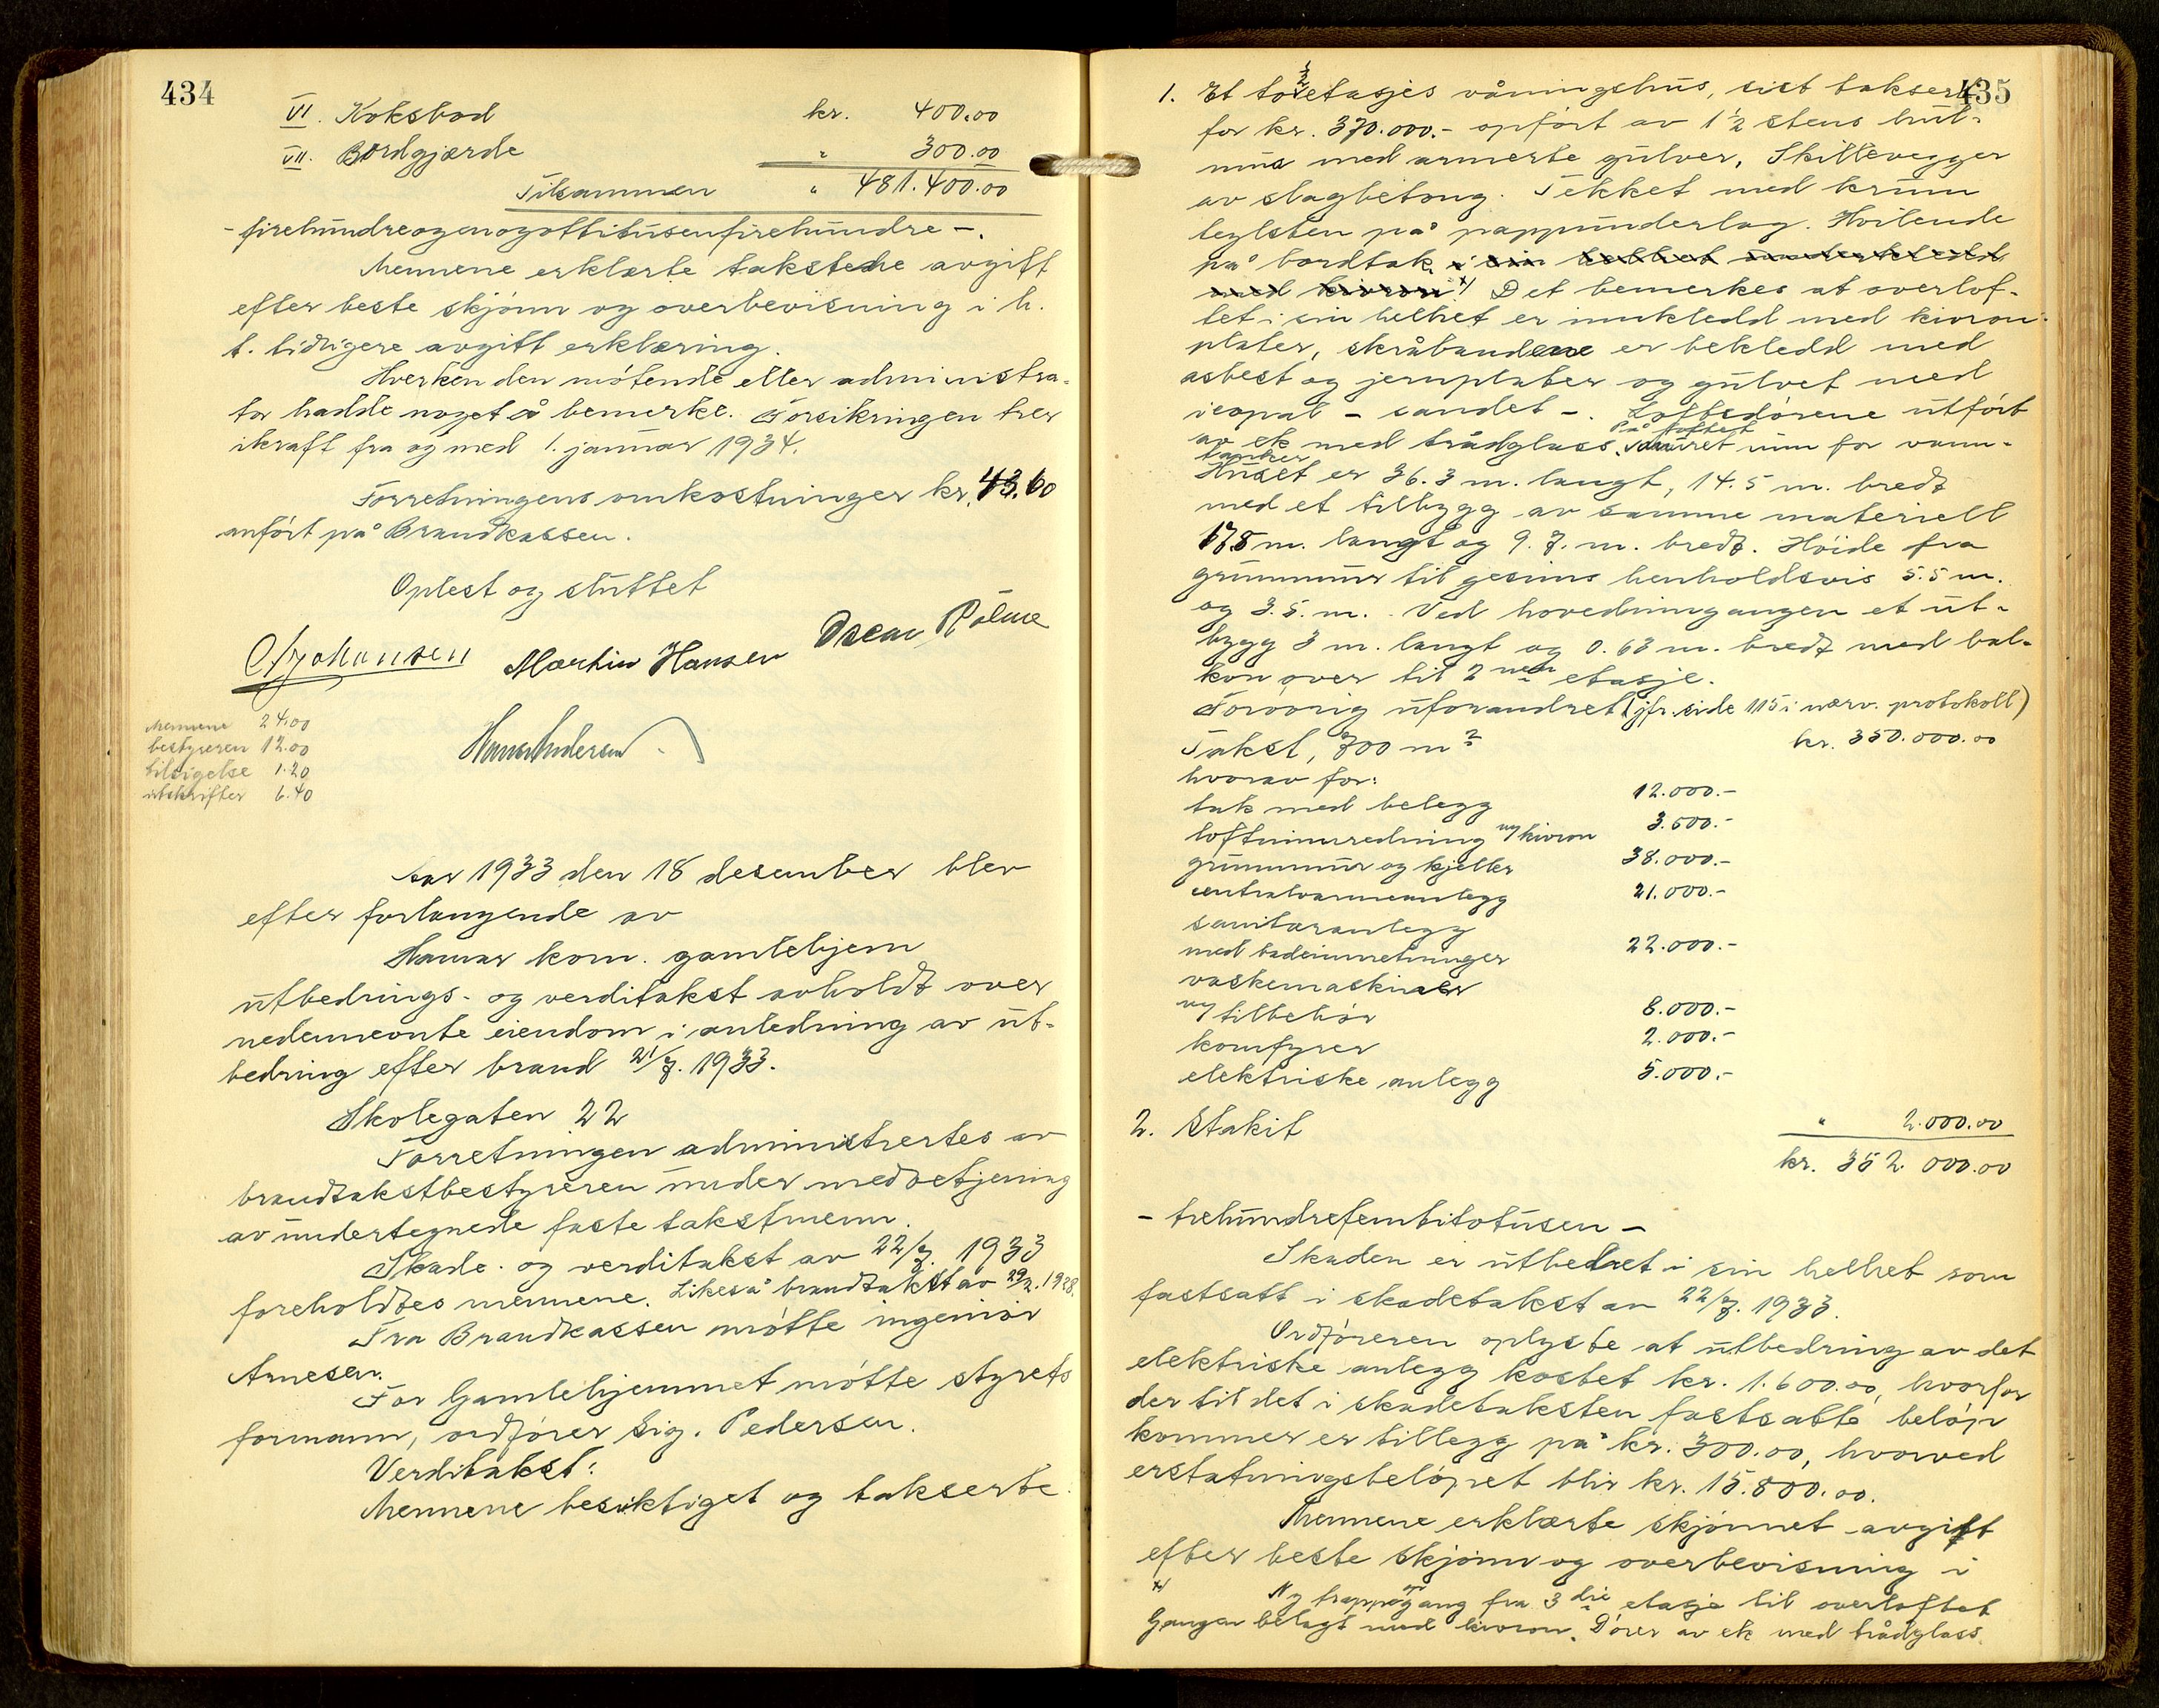 434
VI. Koksbod kr. 400.00
VII. Bordgjærde " 300.00
Tilsammen " 481.400.00
- firehundreogenogottitusenfirehundre -.
Mennene erklærte takstene avgitt
efter beste skjønn og overbevisning i h.
t. tidligere avgitt erklæring.
Hverken den møtende eller administra-
tor hadde noget å bemerke. Forsikringen trer
ikraft fra og med 1. januar 1934.
Forretningens omkostninger kr. 43.60
anført på Brandkassen.
Oplest og sluttet
Johansen Martin Hansen Oscar Pølme
Hans Andersen
Mennene 24.00
bestyreren 12.00
tilsigelse 1.20
utskrifter 6.40
Aar 1933 den 18 desember blev
efter forlangende av
Hamar kom. gamlehjem
utbedrings- og verditakst avholdt over
nedennevnte eiendom i anledning av ut-
bedring efter brand 21/7. 1933.
Skolegaten 22
Forretningen administrertes av
brandtakstbestyreren under medbetjening
av undertegnede faste takstmenn.
Skade- og verditakst av 22/7. 1933
foreholdtes mennene. Likeså brandtakst av 29/2. 1928.
Fra Brandkassen møtte ingeniør
Arnesen.
For Gamlehjemmet møtte styrets
formann, ordfører Sig. Pedersen.
Verditakst:
Mennene besiktiget og takserte
435
1. Et to 1/2 etasjes våningshus, sist taksert
for kr. 370.000.- opført av 1 1/2 stens hul-
mur med armerte gulver, Skillevegger
av slagbetong. Tekket med krum
teglsten på pappunderlag. Hvilende
på bordtak. i sin helhet underkledd
med kivron x) Det bemerkes at overlof-
tet i sin helhet er innkledd med kivron-
plater, skråbandene er bekledd med
asbest og jernplater og gulvet med
icopal - sandet -. Loftsdørene utført
av ek med trådglass. På loftet muret rum for vann-
tanker
Huset er 36.3 m. langt, 14.5 m. bredt
med et tilbygg av samme materiell
17.5 m. langt og 9.7. m. bredt. Høide fra
grunnmur til gesims henholdsvis 5.5 m.
og 3.5. m. Ved hovedinngangen et ut-
bygg 3 m. langt og 0.63 m. bredt med bal-
kon over til 2nen etasje.
Forøvrig uforandret (jfr. side 115 i nærv. protokoll)
Takst, 700 m² kr. 350.000.00
hvorav for:
tak med belegg 12.000.-
loftsinnredning m/kivron 3.500.-
grunnmur og kjeller 38.000.-
centralvarmeanlegg 21.000.-
sanitæranlegg
med badeinnretninger 22.000.-
vaskemaskiner
m/ tilbehør 8.000.-
komfyrer 2.000.-
elektriske anlegg 5.000.-
2. Stakit " 2.000.00
kr. 352.000.00
- trehundrefemtitotusen -
Skaden er utbedret i sin helhet som
fastsatt i skadetakst av 22/7. 1933.
Ordføreren oplyste at utbedring av det
elektriske anlegg kostet kr. 1.600.00, hvorfor
der til det i skadetaksten fastsatte beløp
kommer er tillegg på kr. 300.00, hvorved
erstatningsbeløpet blir kr. 15.800.00.
Mennene erklærte skjønnet avgitt
efter beste skjønn og overbevisning i
x) Ny trappopgang fra 3die etasje til overloftet
Gangen belagt med kivron. Dører av ek med trådglass.